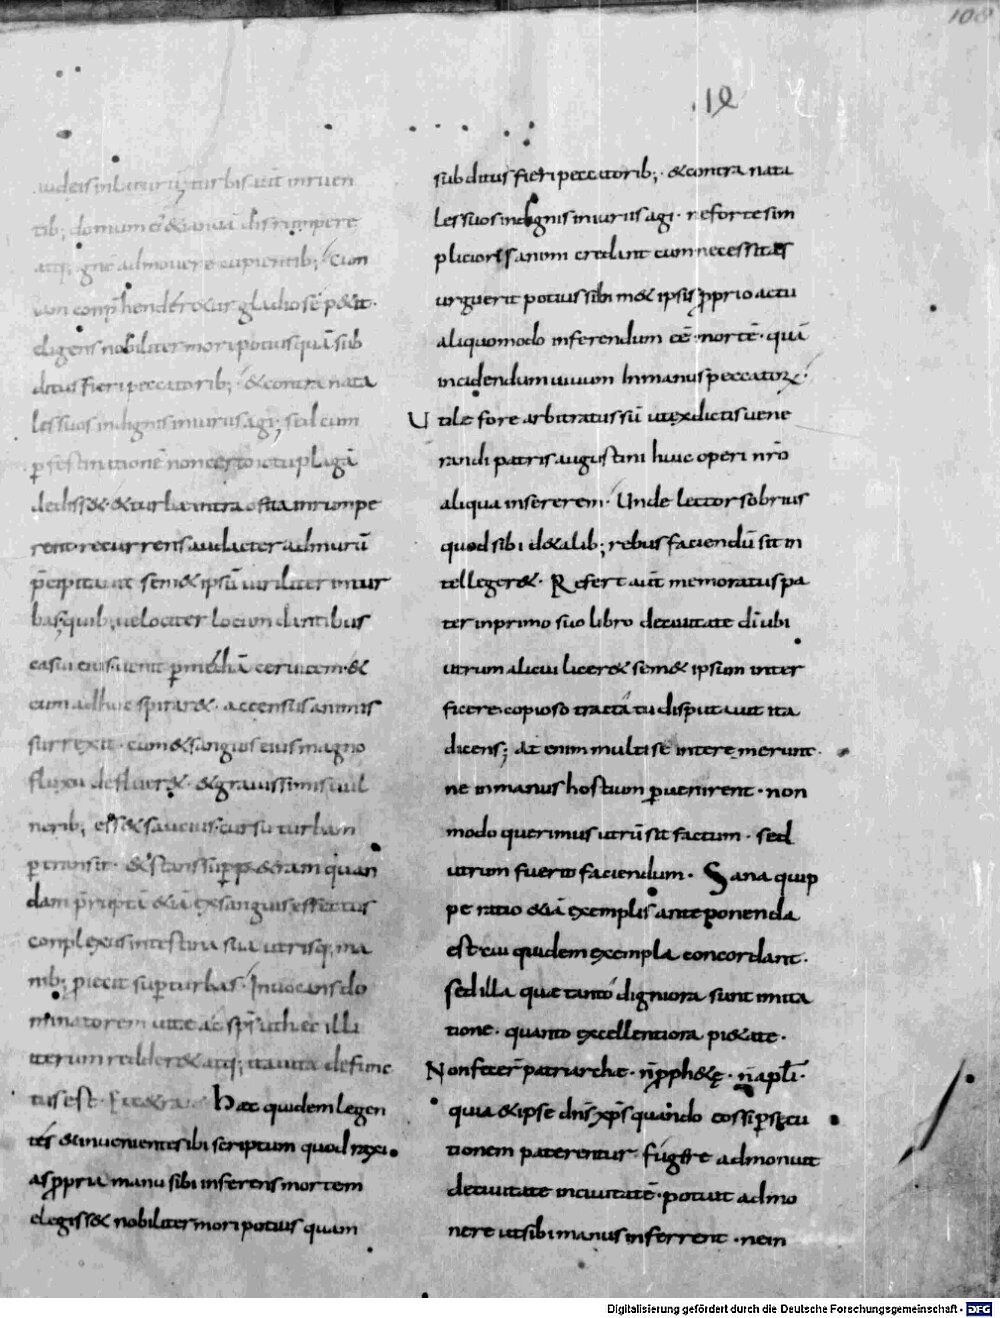 108
tib; domum ei᷒ & ianuā disrumpere
atq; igne admouere cupientib; cum
iam conp̄hendér&ur gladio se p&iit·
eligens nobiliter mori potius quā sub
ditus fieri peccatorib; & contra nata
les suos indignis iniuriis agi; sed cum
ꝑ festinationē non certo ictu plagā
dediss& & turba intra ostia inrumpe
rent recurrens audacter ad murū
p̄cipitauit sem& ipsū uiriliter in tur
bas quib; uelociter locum dantibus
casui eius uenit ꝑ mediā ceruicem &
cum adhuc spirar& accensus animis
surrexit· cum & sanguis eius magno
fluxu deflueret & & grauissimis uul
nerib; ess& saucius cursu turbam
ꝑtransiit· & stans suꝑ p&ram quan
dam p̄ruptā & iā exsanguis effectus
conplexus intestina sua utrisq; ma
nib; proiecit suꝑ turbas· Inuocans do
minatorem uitae ac sp̄s ut haec illi
iterum redder& atq; ita uita defunc
tus est· Haec quidem legen
tes & inuenientes sibi scriptum quod razi
as ꝓpria manu sibi inferens mortem
elegiss& nobiliter mori potius quam
subditus fieri peccatorib; & contra nata
les suos indignis iniuriis agi· ne forte sim
pliciores sanum credant cum necessitas
urguerit potius sibi m& ipsis ꝓprio actu
aliquomodo inferendum eē mortē· quā
incidendum uiuum In manus peccatorꝝ·
Utile fore arbitratus sū ut ex dictis uene
randi patris augustini huic operi nr̄o
aliqua insererem· Unde lector sobrius
quid sibi d& alib; rebus faciendū sit in
telleger&· Refert aūt memoratus pa
ter in primo suo libro de ciuitate dī ubi
utrum alicui licer& sem& ipsum inter
ficere copioso tractatu disputauit ita
dicens; at enim multi se interemerunt·
ne in manus hostium ꝑuenirent· non
modo querimus utrū sit factum· sed
utrum fuerit faciendum· Sana quip
pe ratio & iā exemplis anteponenda
est cui quidem exempla concordant·
sed illa quae tantó digniora sunt imita
tione· quanto excellentiora pi&ate·
Non fecer̄ patriarchae· n̄ ꝓph&ę· n̄ apl̄i·
quia & ipse dn̄s xp̄s quando eos si ꝑsecu
tionem paterentur fugere admonuit
de ciuitate in ciuitatē· potuit admo
nere ut sibi manus inferrent· ne in
Digitalisierung gefördert durch die Deutsche Forschungsgemeinschaft - DFG